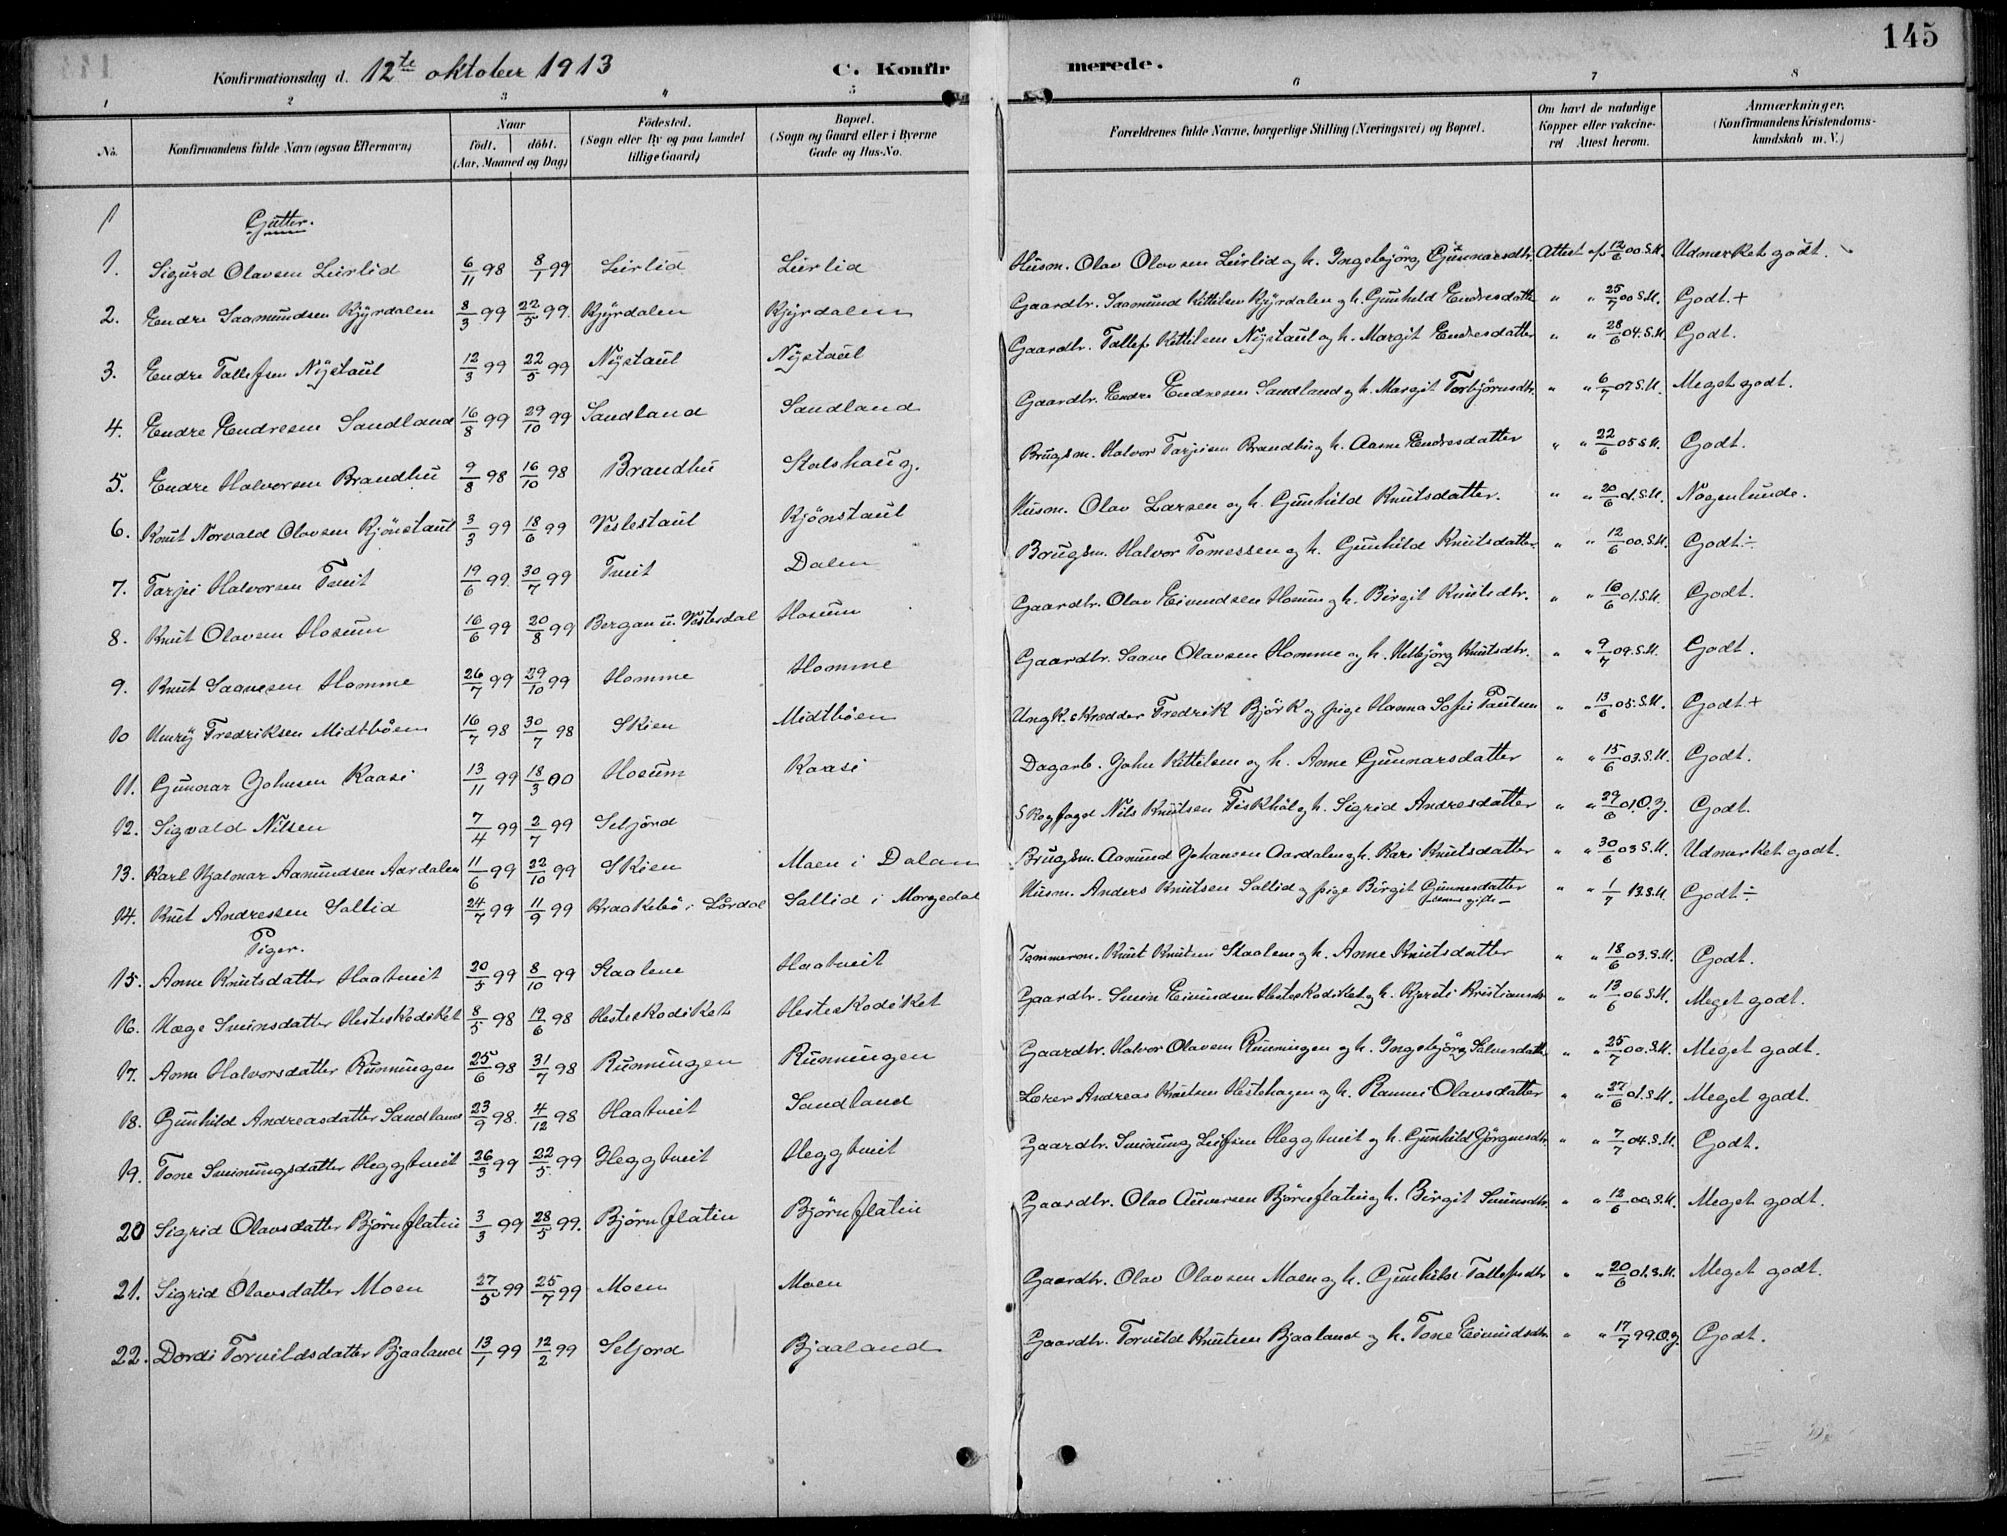 145
Konfirmationsdag d. 12te oktober 1913 C. Konfirmerede.
1 2 3 4 5 6 7 8
No. Konfirmandens fulde Navn (ogsaa Efternavn) Naar födt. döbt. (Aar, Maaned og Dag) Födested. (Sogn eller By og paa Landet tillige Gaard) Bopæl. (Sogn og Gaard eller i Byerne Gade og Hus-No. Forældrenes fulde Navne, borgerlige Stilling (Næringsvei) og Bopæl. Om havt de naturlige Kopper eller vakcineret Attest herom. Anmærkninger. (Konfirmandens Kristendomskundskab m. V.)
Gutter.
1. Sigurd Olavsen Leirlid 6/11 98 8/1 99 Leirlid Leirlid Husm. Olav Olavsen Leirlid og h. Ingebjörg Gunnarsdtr. Attest af 12/6 00 S.H. Udmerket godt.
2. Endre Saamundsen Kjyrdalen 8/3 99 22/5 99. Kjyrdalen Kjyrdalen Gaardbr. Saamund Kittilsen Kjyrdalen og h. Gunhild Endresdatter " " 25/7 00 S.H. Godt. +
3. Endre Tallefsen Nystaul 12/3 99 22/5 99 Nystaul Nystaul Gaardbr. Tallef Kittilsen Nystaul og h. Margit Endresdatter " " 28/6 04. S.H. Godt.
4. Endre Endresen Sandland 16/8 99 29/10 99 Sandland Sandland Gaardbr. Endre Endresen Sandland og h. Margit Torbjörnsdtr. " " 6/7 07 S.H. Meget godt.
5. Endre Halvorsen Brandhu 9/8 98 16/10 98 Brandhu Stalshaug. Brugsm. Halvor Tarjeisen Brandhu og h. Aasne Endresdatter " " 22/6 05 S.H. Godt.
6. Knut Norvald Olavsen Kjönstaul 3/3 99 18/6 99 Veslestaul Kjönstaul Husm. Olav Larsen og h. Gunhild Knutsdatter. " " 20/6 01. S.H. Nogenlunde.
7. Tarjei Halvorsen Tveit 19/6 99. 30/7 99 Tveit Dalen Brugsm. Halvor Tomessen og h. Gunhild Knutsdatter. " " 12/6 00. S.H. Godt ÷
8. Knut Olavsen Hosum 16/6 99 20/8 99 Bergan u. Vesterdal Hosum Gaardbr. Olav Eivindsen Hosum og h. Birgit Knutsdtr. " " 16/6 01. S.H. Godt.
9. Knut Saavesen Homme 26/7 99 29/10 99 Homme Homme Gaardbr. Saave Olavsen Homme og h. Helbjörg Knutsdtr. " " 9/7 09. S.H. Godt.
10 Henry Fredriksen Midtböen 16/7 98 30/7 98 Skien Midtböen Ungk. skredder Fredrik Björk og pige Hanna Sofie Paulsen " " 13/6 05. S.H. Godt +
11. Gunnar Johnsen Kaasi 13/11 99 18/3 00 Hosum Kaasi Dagarb. John Kittilsen og h. Anne Gunnarsdatter " " 15/6 03. S.H. Godt.
12. Sigvald Nilsen 7/4 99 2/7 99 Seljörd Skogfoged Nils Knutsen Fiskhöl og h. Sigrid Andresdatter " " 29/6 01. O.J. Godt.
13. Karl Hjalmar Aamundsen Aardalen 11/6 99 22/10 99 Skien Moen i Dalan Brugsm. Aamund Johansen Aardalen og h. Kari Knutsdatter " " 30/6 03 S.H. Udmerket godt.
14. Knut Andressen Sallid 24/7 99 11/9 99 Kraakebö i Lårdal Sallid i Morgedal Husm. Anders Knutsen Sallid og pige Birgit Gunnesdatter " " 1/7 13. S.H. Godt ÷
Piger.
15. Anne Knutsdatter Haatveit 20/5 99 8/10 99 Staalene Haatveit Tømmerm. Knut Knutsen Staalene og h. Anne Knutsdatter " " 18/6 03. S.H. Godt.
16. Hæge Sveinsdatter Hesteskodiket 8/5 98 19/6 98 Hesteskodiket Hesteskodiket Gaardbr. Svein Eivindsen Hesteskodiket og h. Kjersti Kristiansdtr " " 13/6 06 S.H. Meget godt.
17. Anne Halvorsdatter Runningen 25/6 98 31/7 98 Runningen Runningen Gaardbr. Halvor Olavsen Runningen og h. Ingebjörg Salvesdatter " " 25/7 00. S.H. Meget godt.
18. Gunhild Andreasdatter Sandland 23/9 98. 4/12 98 Haatveit Sandland Lærer Andreas Knutsen Hestehagen og h. Rannei Olavsdatter " " 27/6 01. S.H. Meget godt.
19. Tone Sveinungsdatter Heggtveit 26/3 99 22/5 99 Heggtveit Heggtveit Gaardbr. Sveinung Leifsen Heggtveit og h. Gunhild Jörgensdtr " " 7/7 04. S.H. Godt.
20 Sigrid Olavsdatter Björnflatin 3/3 99 28/5 99. Björnflatin Björnflatin Gaardbr. Olav Auversen Björnflatin og h. Birgit Sveinsdtr. " " 12/6 00. S.H. Meget godt.
21. Sigrid Olavsdatter Moen 27/5 99 25/7 99 Moen Moen Gaardbr. Olav Olavsen Moen og h. Gunhild Tallefsdtr " " 20/6 01. S.H. Meget godt.
22. Dordi Torvildsdatter Bjaaland 13/1 99 12/2 99 Seljord Bjaaland Gaardbr. Torvild Knutsen Bjaaland og h. Tone Eivindsdtr. " " 17/7 99 O.J. Godt.